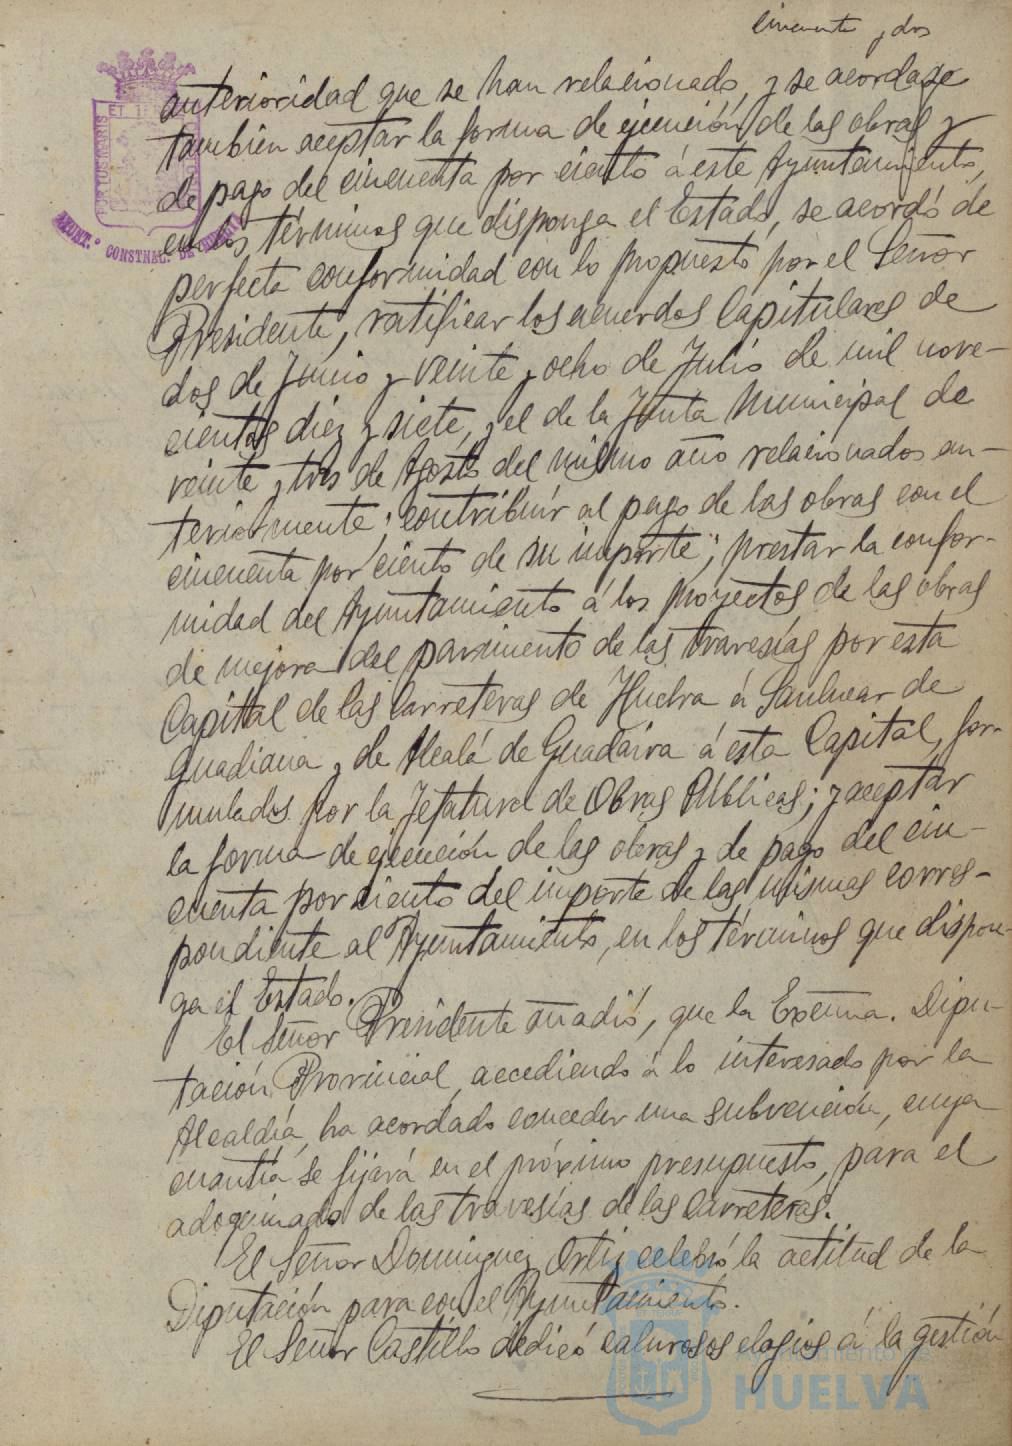 cincuenta y dos
PORTUS MARIS ET
AYUNT.º CONSTNAL. DE
anterioridad que se han relacionado, y se acordase
también aceptar la forma de ejecución de las obras y
de pago del cincuenta por ciento á este Ayuntamiento,
en los términos que disponga el Estado, se acordó de
perfecta conformidad con lo propuesto por el Señor
Presidente, ratificar los acuerdos Capitulares de
dos de Junio y veinte y ocho de Julio de mil nove-
cientos diez y siete, y el de la Junta Municipal de
veinte y tres de Agosto del mismo año relacionados an-
teriormente; contribuir al pago de las obras con el
cincuenta por ciento de su importe; prestar la confor-
midad del Ayuntamiento á los proyectos de las obras
de mejora del pavimento de las travesías por esta
Capital de las Carreteras de Huelva á Sanlucar de
Guadiana y de Alcalá de Guadaira á esta Capital, for-
mulados por la Jefatura de Obras Públicas; y aceptar
la forma de ejecución de las obras y de pago del cin-
cuenta por ciento del importe de las mismas corres-
pondiente al Ayuntamiento, en los términos que dispon-
ga el Estado.
El Señor Presidente añadió, que la Excma. Dipu-
tación Provincial, accediendo á lo interesado por la
Alcaldía, ha acordado conceder una subvención, cuya
cuantía se fijará en el próximo presupuesto, para el
adoquinado de las travesías de las Carreteras.
El Señor Dominguez Ortiz celebró la actitud de la
Diputación para con el Ayuntamiento.
El Señor Castillo dedicó calurosos elogios á la gestión
Ayuntamiento de
HUELVA